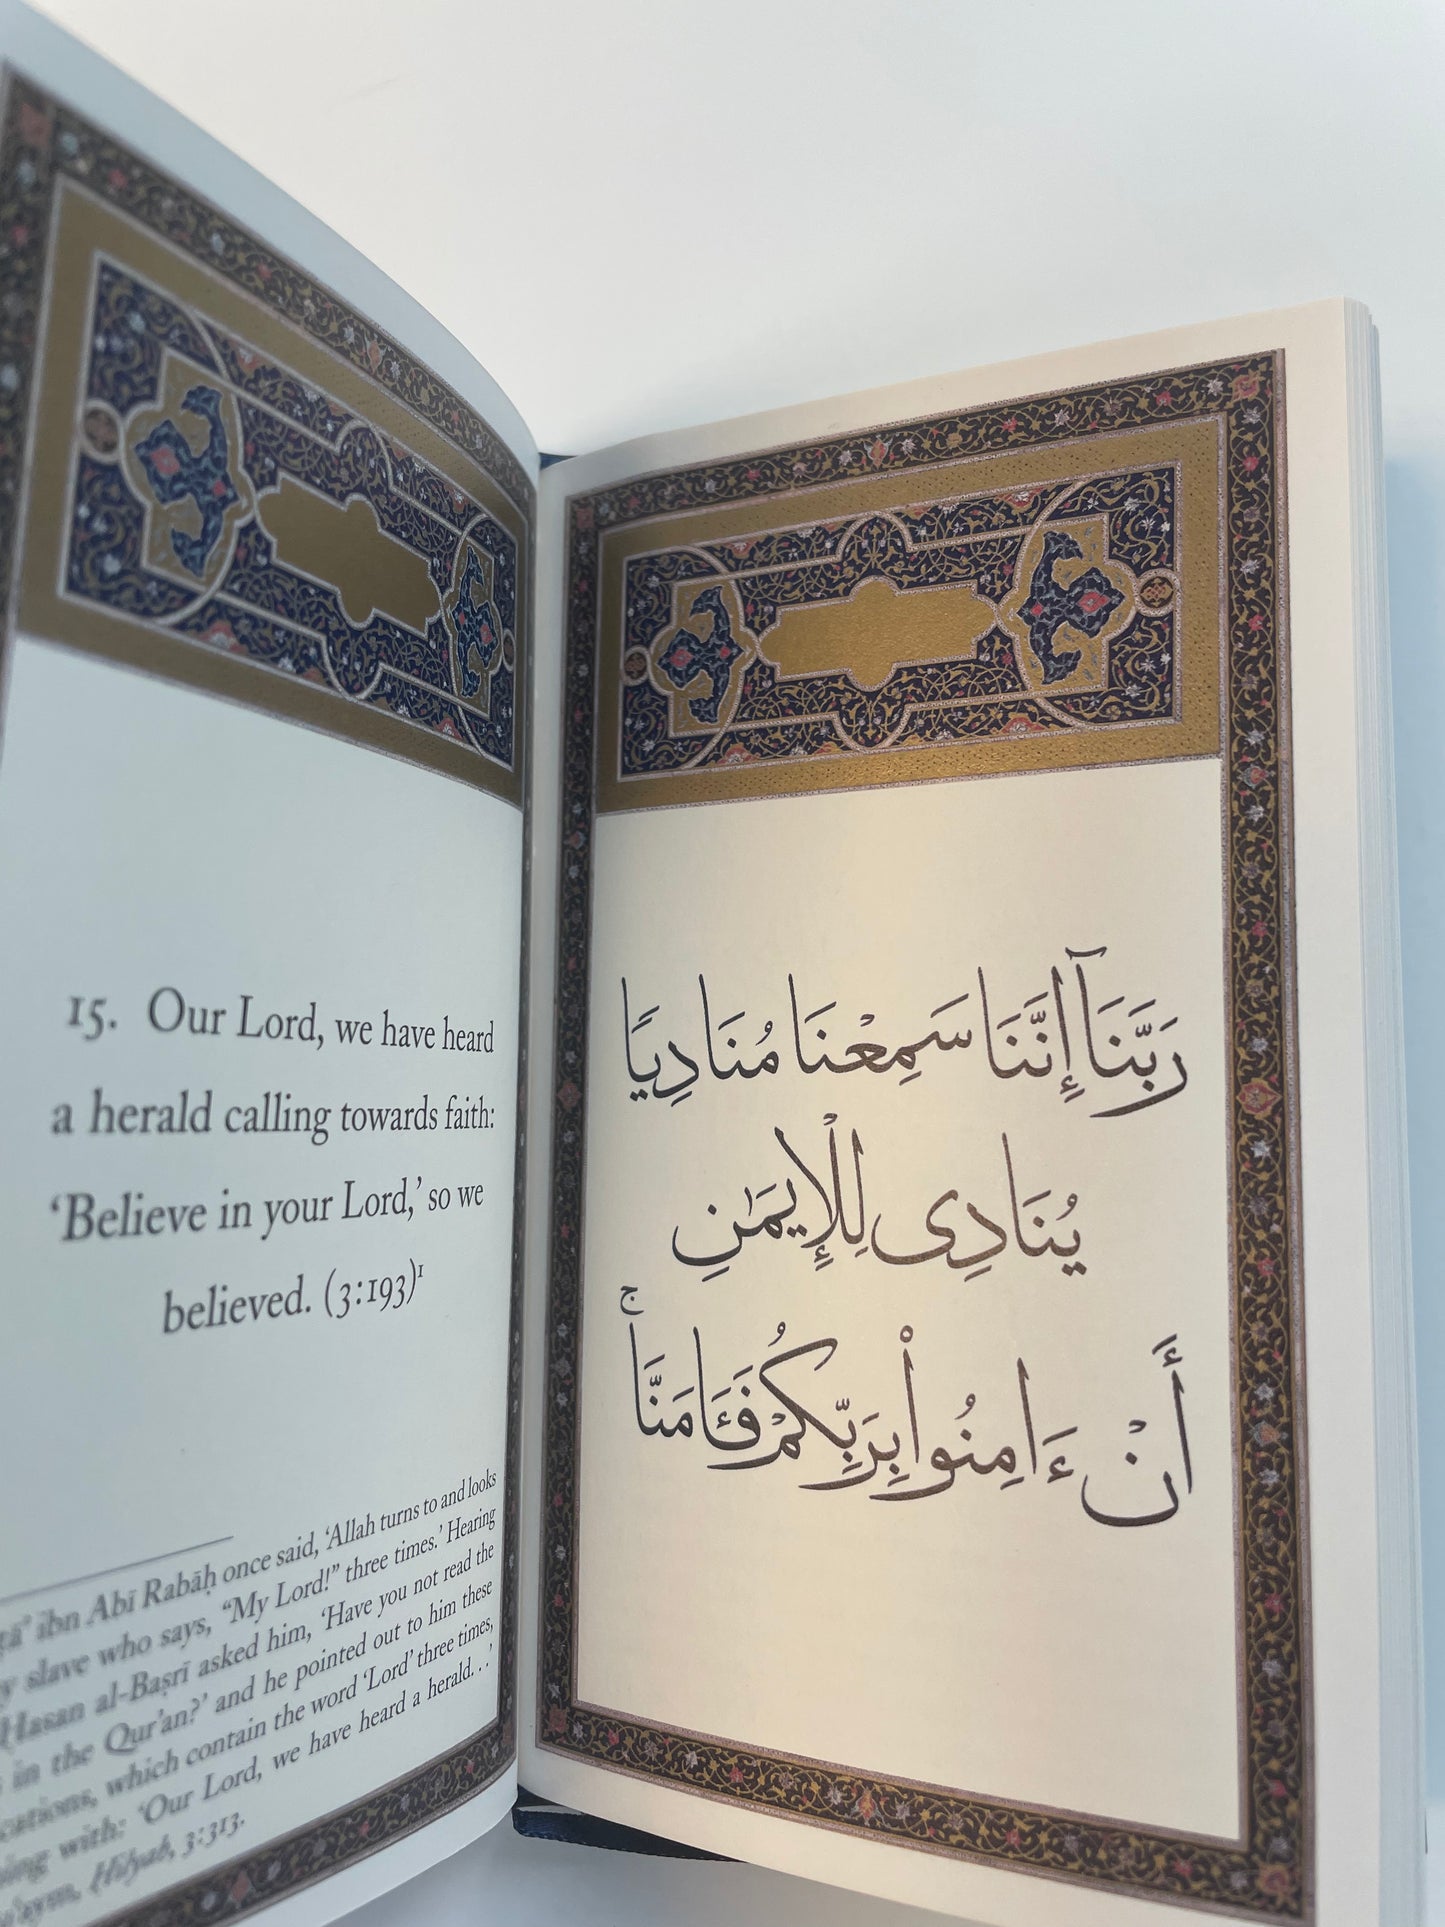 15. Our Lord, we have heard
a herald calling towards faith:
‘Believe in your Lord,’ so we
believed. (3:193)¹
ibn Abī Rabāḥ once said, ‘Allah turns to and looks
slave who says, “My Lord!” three times.’ Hearing
Ḥasan al-Baṣrī asked him, ‘Have you not read the
in the Qur’an?’ and he pointed out to him these
which contain the word ‘Lord’ three times,
with: ‘Our Lord, we have heard a herald...’
Ḥilyah, 3:313.
رَبَّنَآ إِنَّنَا سَمِعْنَا مُنَادِيًا
يُنَادِى لِلْإِيمَٰنِ
أَنْ ءَامِنُوا۟ بِرَبِّكُمْ فَـَٔامَنَّا ۚ